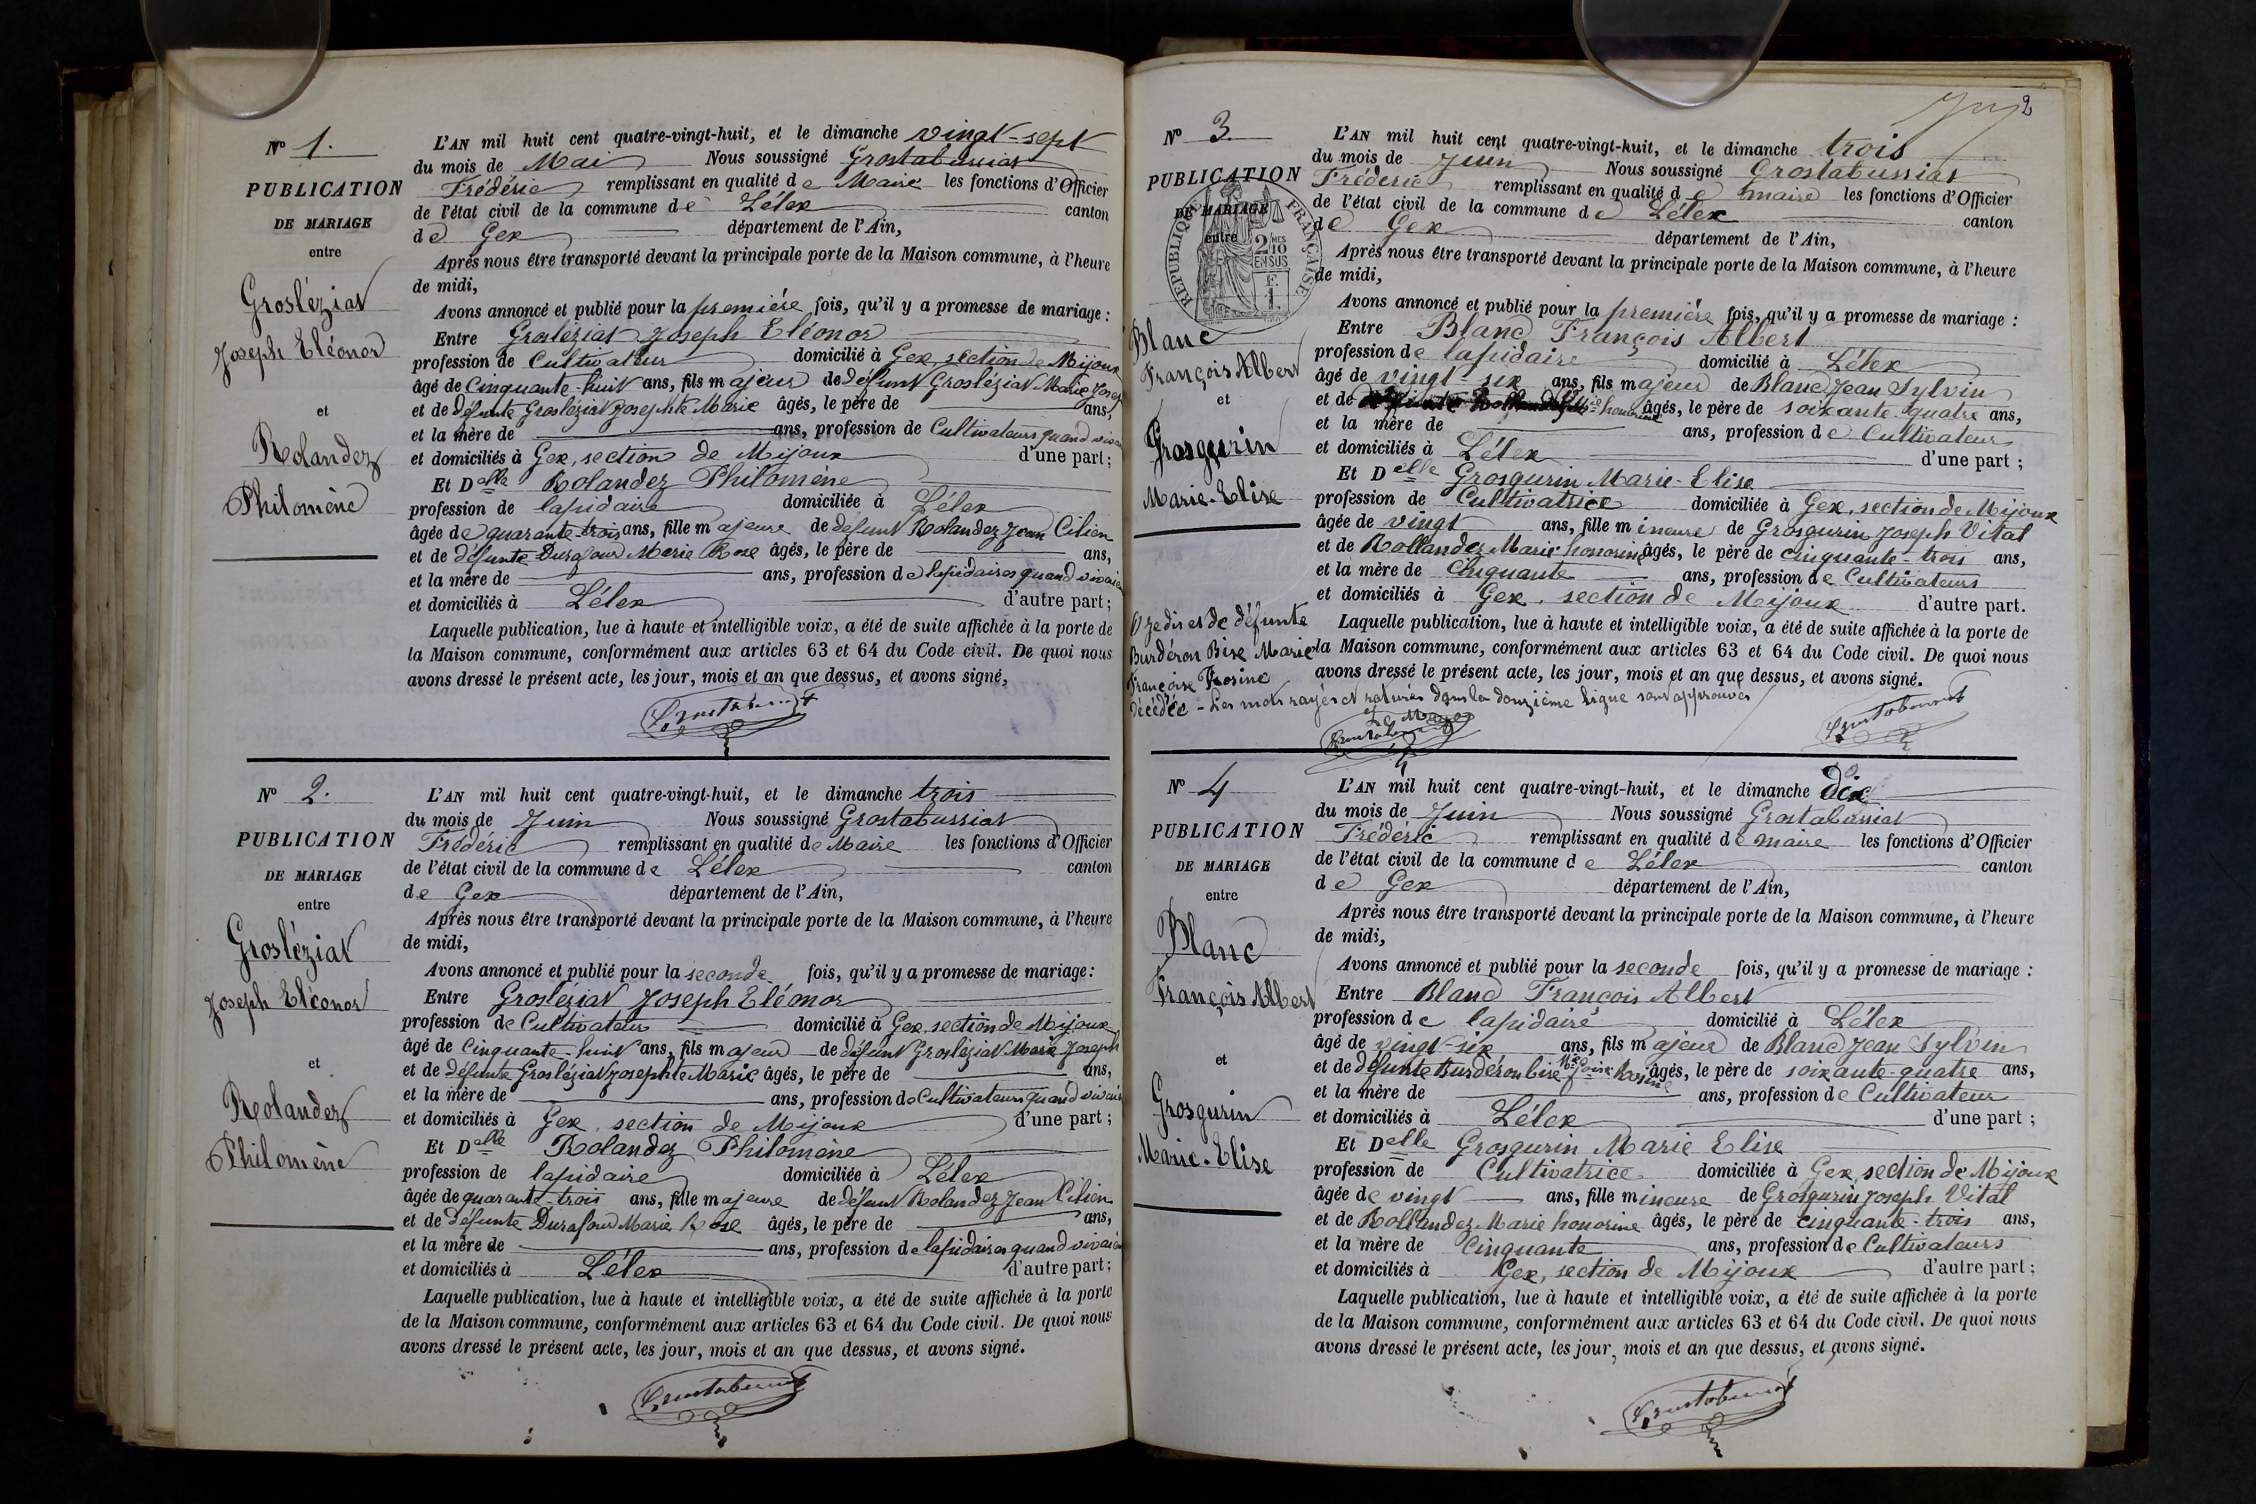 N° 1.
PUBLICATION
DE MARIAGE
entre
Grosléziat
Joseph Eléonor
et
Rolandez
Philomène
L'AN mil huit cent quatre-vingt-huit, et le dimanche vingt-sept
du mois de Mai Nous soussigné Grostabussiat
Frédéric remplissant en qualité de Maire les fonctions d'Officier
de l'état civil de la commune de Lélex canton
de Gex département de l'Ain,
Après nous être transporté devant la principale porte de la Maison commune, à l'heure
de midi,
Avons annoncé et publié pour la première fois, qu'il y a promesse de mariage :
Entre Grosléziat Joseph Eléonor
profession de Cultivateur domicilié à Gex, section de Mijoux
âgé de Cinquante-huit ans, fils majeur de défunt Grosléziat Marie Joseph
et de défunte Grosléziat Josephte Marie âgés, le père de ans,
et la mère de ans, profession de Cultivateurs quand vivaient
et domiciliés à Gex, section de Mijoux d'une part ;
Et Delle Rolandez Philomène
profession de lapidaire domiciliée à Lélex
âgée de quarante-trois ans, fille majeure de défunt Rolandez Jean Cilien
et de défunte Durafour Marie Rose âgés, le père de ans,
et la mère de ans, profession de lapidaires quand vivaient
et domiciliés à Lélex d'autre part ;
Laquelle publication, lue à haute et intelligible voix, a été de suite affichée à la porte de
la Maison commune, conformément aux articles 63 et 64 du Code civil. De quoi nous
avons dressé le présent acte, les jour, mois et an que dessus, et avons signé,
Grostabussiat
N° 2.
PUBLICATION
DE MARIAGE
entre
Grosléziat
Joseph Eléonor
et
Rolandez
Philomène
L'AN mil huit cent quatre-vingt-huit, et le dimanche trois
du mois de Juin Nous soussigné Grostabussiat
Frédéric remplissant en qualité de Maire les fonctions d'Officier
de l'état civil de la commune de Lélex canton
de Gex département de l'Ain,
Après nous être transporté devant la principale porte de la Maison commune, à l'heure
de midi,
Avons annoncé et publié pour la seconde fois, qu'il y a promesse de mariage :
Entre Grosléziat Joseph Eléonor
profession de Cultivateur domicilié à Gex, section de Mijoux
âgé de Cinquante-huit ans, fils majeur de défunt Grosléziat Marie Joseph
et de défunte Grosléziat Josephte Marie âgés, le père de ans,
et la mère de ans, profession de Cultivateurs quand vivaient
et domiciliés à Gex, section de Mijoux d'une part ;
Et Delle Rolandez Philomène
profession de lapidaire domiciliée à Lélex
âgée de quarante-trois ans, fille majeure de défunt Rolandez Jean Cilien
et de défunte Durafour Marie Rose âgés, le père de ans,
et la mère de ans, profession de lapidaires quand vivaient
et domiciliés à Lélex d'autre part ;
Laquelle publication, lue à haute et intelligible voix, a été de suite affichée à la porte
de la Maison commune, conformément aux articles 63 et 64 du Code civil. De quoi nous
avons dressé le présent acte, les jour, mois et an que dessus, et avons signé.
Grostabussiat
2
N° 3.
PUBLICATION
DE MARIAGE
entre
RÉPUBLIQUE FRANÇAISE
2/10 MES
EN SUS
F.
1.
Blanc
François Albert
et
Grosgurin
Marie-Elize
L'AN mil huit cent quatre-vingt-huit, et le dimanche trois
du mois de Juin Nous soussigné Grostabussiat
Frédéric remplissant en qualité de maire les fonctions d'Officier
de l'état civil de la commune de Lélex canton
de Gex département de l'Ain,
Après nous être transporté devant la principale porte de la Maison commune, à l'heure
de midi,
Avons annoncé et publié pour la première fois, qu'il y a promesse de mariage :
Entre Blanc François Albert
profession de lapidaire domicilié à Lélex
âgé de vingt-six ans, fils majeur de Blanc Jean Sylvin
et de défunte Rollandez Mie honorine âgés, le père de soixante-quatre ans,
et la mère de ans, profession de Cultivateur
et domiciliés à Lélex d'une part ;
Et Delle Grosgurin Marie-Elise
profession de Cultivatrice domiciliée à Gex, section de Mijoux
âgée de vingt ans, fille mineure de Grosgurin Joseph Vital
et de Rollandez Marie honorine âgés, le père de cinquante-trois ans,
et la mère de Cinquante ans, profession de Cultivateurs
et domiciliés à Gex, section de Mijoux d'autre part.
Laquelle publication, lue à haute et intelligible voix, a été de suite affichée à la porte de
la Maison commune, conformément aux articles 63 et 64 du Code civil. De quoi nous
avons dressé le présent acte, les jour, mois et an que dessus, et avons signé.
et de défunte
Burdéron Bise Marie
Françoise Rosine
décédée - Les mots rayés et raturés dans la douzième ligne sont approuvés
Le Maire
Grostabussiat
Grostabussiat
N° 4
PUBLICATION
DE MARIAGE
entre
Blanc
François Albert
et
Grosgurin
Marie-Elise
L'AN mil huit cent quatre-vingt-huit, et le dimanche dix
du mois de Juin Nous soussigné Grostabussiat
Frédéric remplissant en qualité de maire les fonctions d'Officier
de l'état civil de la commune de Lélex canton
de Gex département de l'Ain,
Après nous être transporté devant la principale porte de la Maison commune, à l'heure
de midi,
Avons annoncé et publié pour la seconde fois, qu'il y a promesse de mariage :
Entre Blanc François Albert
profession de lapidaire domicilié à Lélex
âgé de vingt-six ans, fils majeur de Blanc Jean Sylvin
et de défunte Burdéron bise Mie foise Rosine âgés, le père de soixante-quatre ans,
et la mère de ans, profession de Cultivateur
et domiciliés à Lélex d'une part ;
Et Delle Grosgurin Marie Elise
profession de Cultivatrice domiciliée à Gex, section de Mijoux
âgée de vingt ans, fille mineure de Grosgurin Joseph Vital
et de Rollandez Marie honorine âgés, le père de cinquante-trois ans,
et la mère de Cinquante ans, profession de Cultivateurs
et domiciliés à Gex, section de Mijoux d'autre part ;
Laquelle publication, lue à haute et intelligible voix, a été de suite affichée à la porte
de la Maison commune, conformément aux articles 63 et 64 du Code civil. De quoi nous
avons dressé le présent acte, les jour, mois et an que dessus, et avons signé.
Grostabussiat